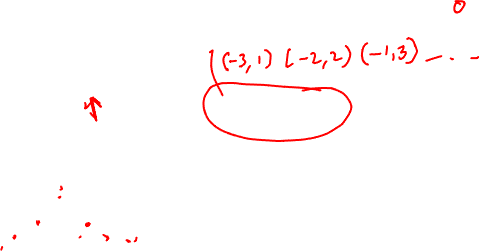 0
(-3,1) (-2,2) (-1,3) - . . -